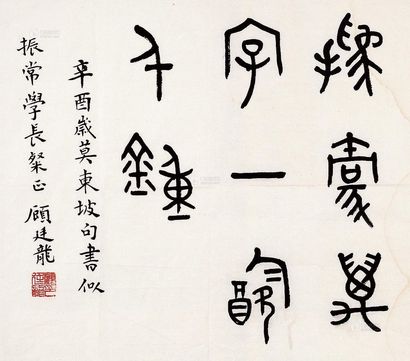 揮豪萬
字一飲
千鍾
辛酉歲莫東坡句書似
振常學長粲正 顧廷龍